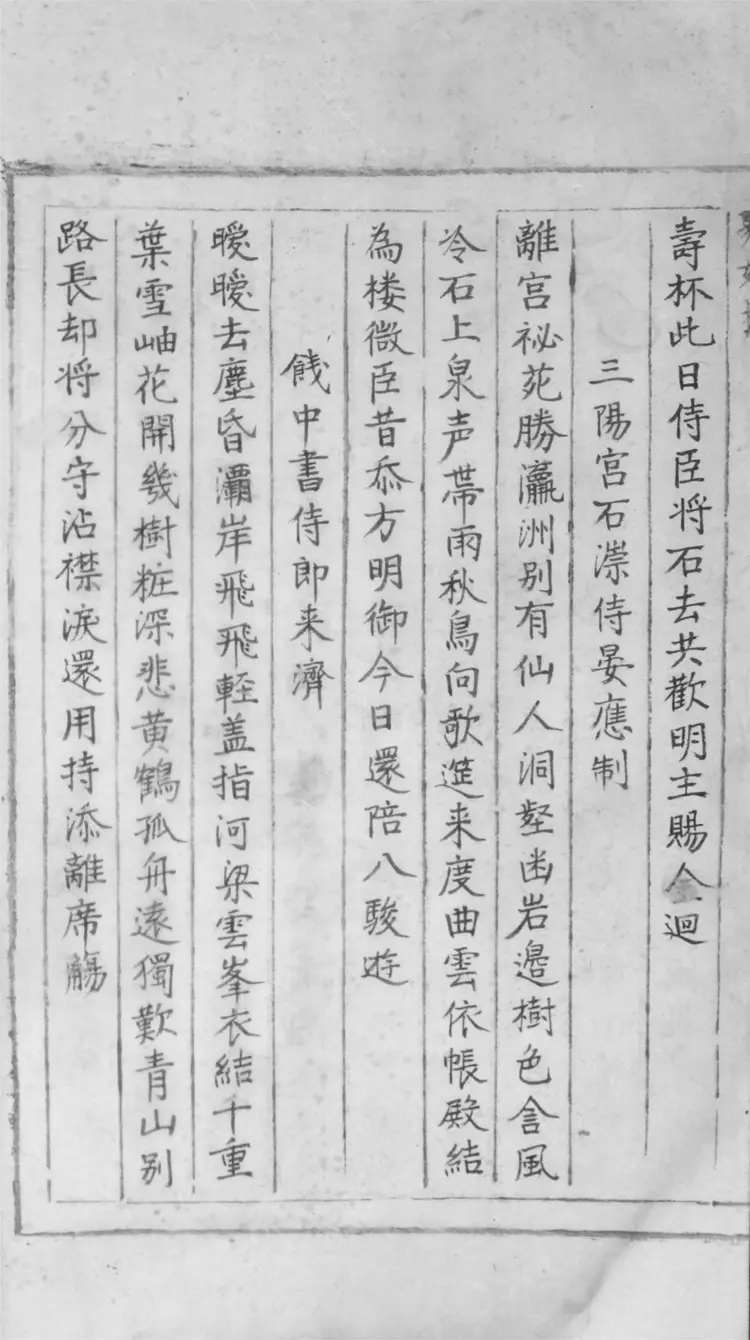 壽杯此日侍臣将石去共歡明主賜仐迴
三陽宮石淙侍晏應制
離宮祕苑勝瀛洲别有仙人洞壑幽岩邉樹色含風
冷石上泉声帯雨秋鳥向歌筵来度曲雲依帳殿結
為楼微臣昔忝方明御今日還陪八駿遊
餞中書侍郎来濟
曖曖去塵昏灞岸飛飛輕盖指河梁雲峯衣結千重
葉雪岫花開幾樹粧深悲黄鶴孤舟遠獨歎青山别
路長却将分守沾襟淚還用持添離席觴